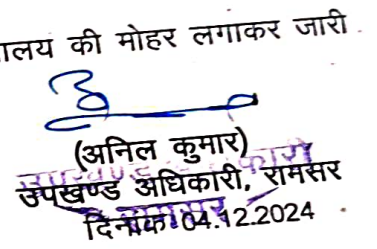 ालय की मोहर लगाकर जारी
(अनिल कुमार)
उपखण्ड अधिकारी, रामसर
दिनांक 04.12.2024